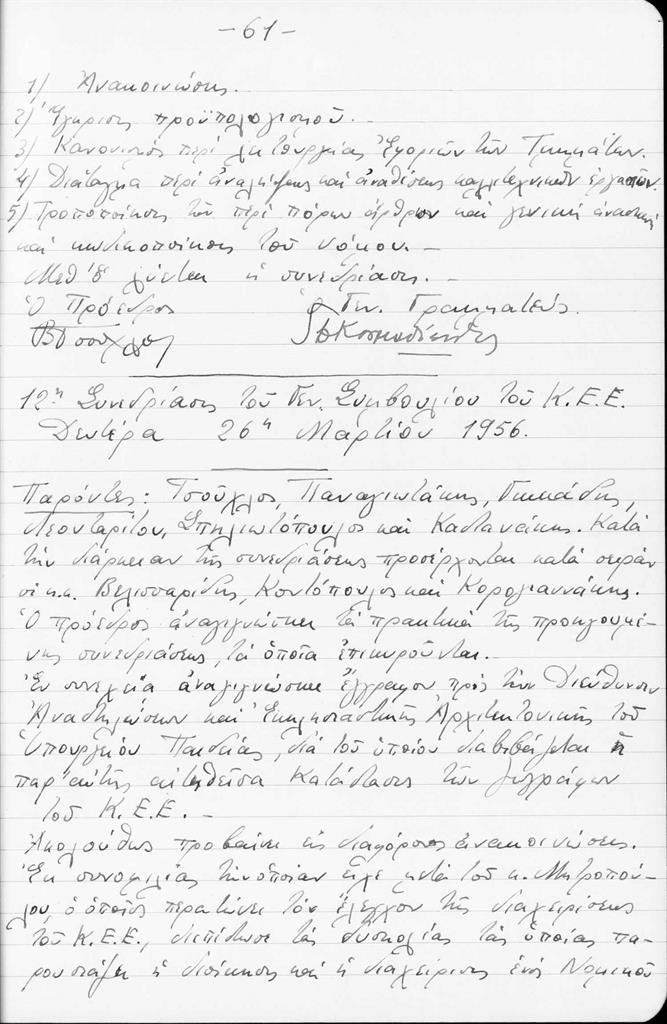 -61-
1) Ἀνακοινώσεις.
2) Ἔγκρισις προϋπολογισμοῦ.-
3) Κανονισμός περί λειτουργίας Ἐφοριῶν τῶν Τμημάτων.
4) Διάταγμα περί ἀναλήψεως καί ἀναθέσεως καλλιτεχνικῶν ἐργασιῶν.
5) Τροποποίησις τῶν περί πόρων ἄρθρων καί γενική
καί κωδικοποίησις τοῦ νόμου.-
Μεθ' ὅ λύεται ἡ συνεδρίασις.-
Ὁ Πρόεδρος Ὁ Γεν. Γραμματεύς.
12η Συνεδρίασις τοῦ Γεν. Συμβουλίου τοῦ Κ.Ε.Ε.
Δευτέρα 26η Μαρτίου 1956.
Παρόντες: Τσοῦχλος, Παναγιωτάκης,
Λεονταρίτου, Σπηλιωτόπουλος καί Καστανάκης. Κατά
τήν διάρκειαν τῆς συνεδριάσεως προσέρχονται κατά σειράν
οἱ κ.κ. Βελισσαρίδης, Κοντόπουλος καί Κορογιαννάκης.
Ὁ πρόεδρος ἀναγιγνώσκει τά πρακτικά τῆς προηγουμέ-
νης συνεδριάσεως, τά ὁποῖα ἐπικυροῦνται.-
Ἐν συνεχείᾳ ἀναγιγνώσκει ἔγγραφον πρός τήν Διεύθυνσιν
Ἀναστηλώσεων καί Ἐκκλησιαστικῆς Ἀρχιτεκτονικῆς τοῦ
Ὑπουργείου Παιδείας, διά τοῦ ὁποίου διαβιβάζεται ἡ
παρ' αὐτῆς αἰτηθεῖσα κατάστασις τῶν ζωγράφων
τοῦ Κ.Ε.Ε.-
Ἀκολούθως προβαίνει εἰς διαφόρους ἀνακοινώσεις.
Ἐκ συνομιλίας τήν ὁποίαν εἶχε μετά τοῦ κ. Μητροπού-
λου, ὁ ὁποῖος περατώνει τόν ἔλεγχον τῆς διαχειρίσεως
τοῦ Κ.Ε.Ε., διεπίστωσε τάς δυσκολίας τάς ὁποίας πα-
ρουσιάζει ἡ διοίκησις καί ἡ διαχείρισις ἑνός Νομικοῦ